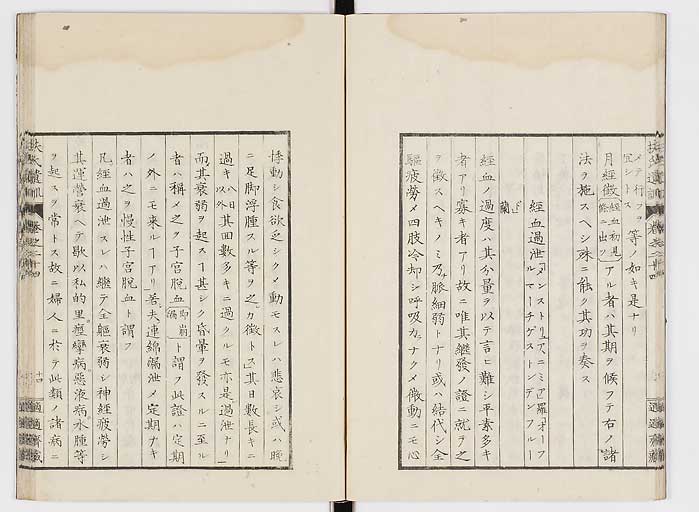 メテ行フヲ
宜シトス 等ノ如キ是ナリ
月經徴經血初見條ニ出ツアル者ハ其期ヲ候フテ右ノ諸
法ヲ施スヘシ殊ニ能ク其功ヲ奏ス
經血過泄
ルマーチゲストンデンフルー
蘭
經血ノ過度ハ其分量ヲ以テ言ヒ難シ平素多キ
者アリ寡キ者アリ故ニ唯其継發ノ證ニ就テ之
ヲ徴スヘキノミ乃脈細弱トナリ或ハ結代シ全
軀疲勞メ四肢冷却シ呼吸カナクメ微動ニモ心
悸動シ食欲乏シクメ動モスレハ悲哀シ或ハ晩
ニ足脚浮腫スル等ヲ之カ徴トス其日數長キニ
過キ八日以外其回數多キニ過クルモ亦是過泄ナリ
而其衰弱ヲ起スヿ甚シク昏暈ヲ發スルニ至ル
者ハ稱メ之ヲ子宮脫血即崩漏ト謂フ此證ハ定期
ノ外ニモ來ルヿアリ若夫連綿漏泄メ定期ナキ
者ハ之ヲ慢性子宮脫血ト謂フ
凡經血過泄スレハ継テ全軀衰弱シ神經疲勞シ
其運營衰ヘテ歇以私的里痙攣病惡液病水腫等
ヲ起スヲ常トス故ニ婦人ニ於テ此類ノ諸病ニ
扶氏遺訓
卷之二十四
十四
適適齋藏